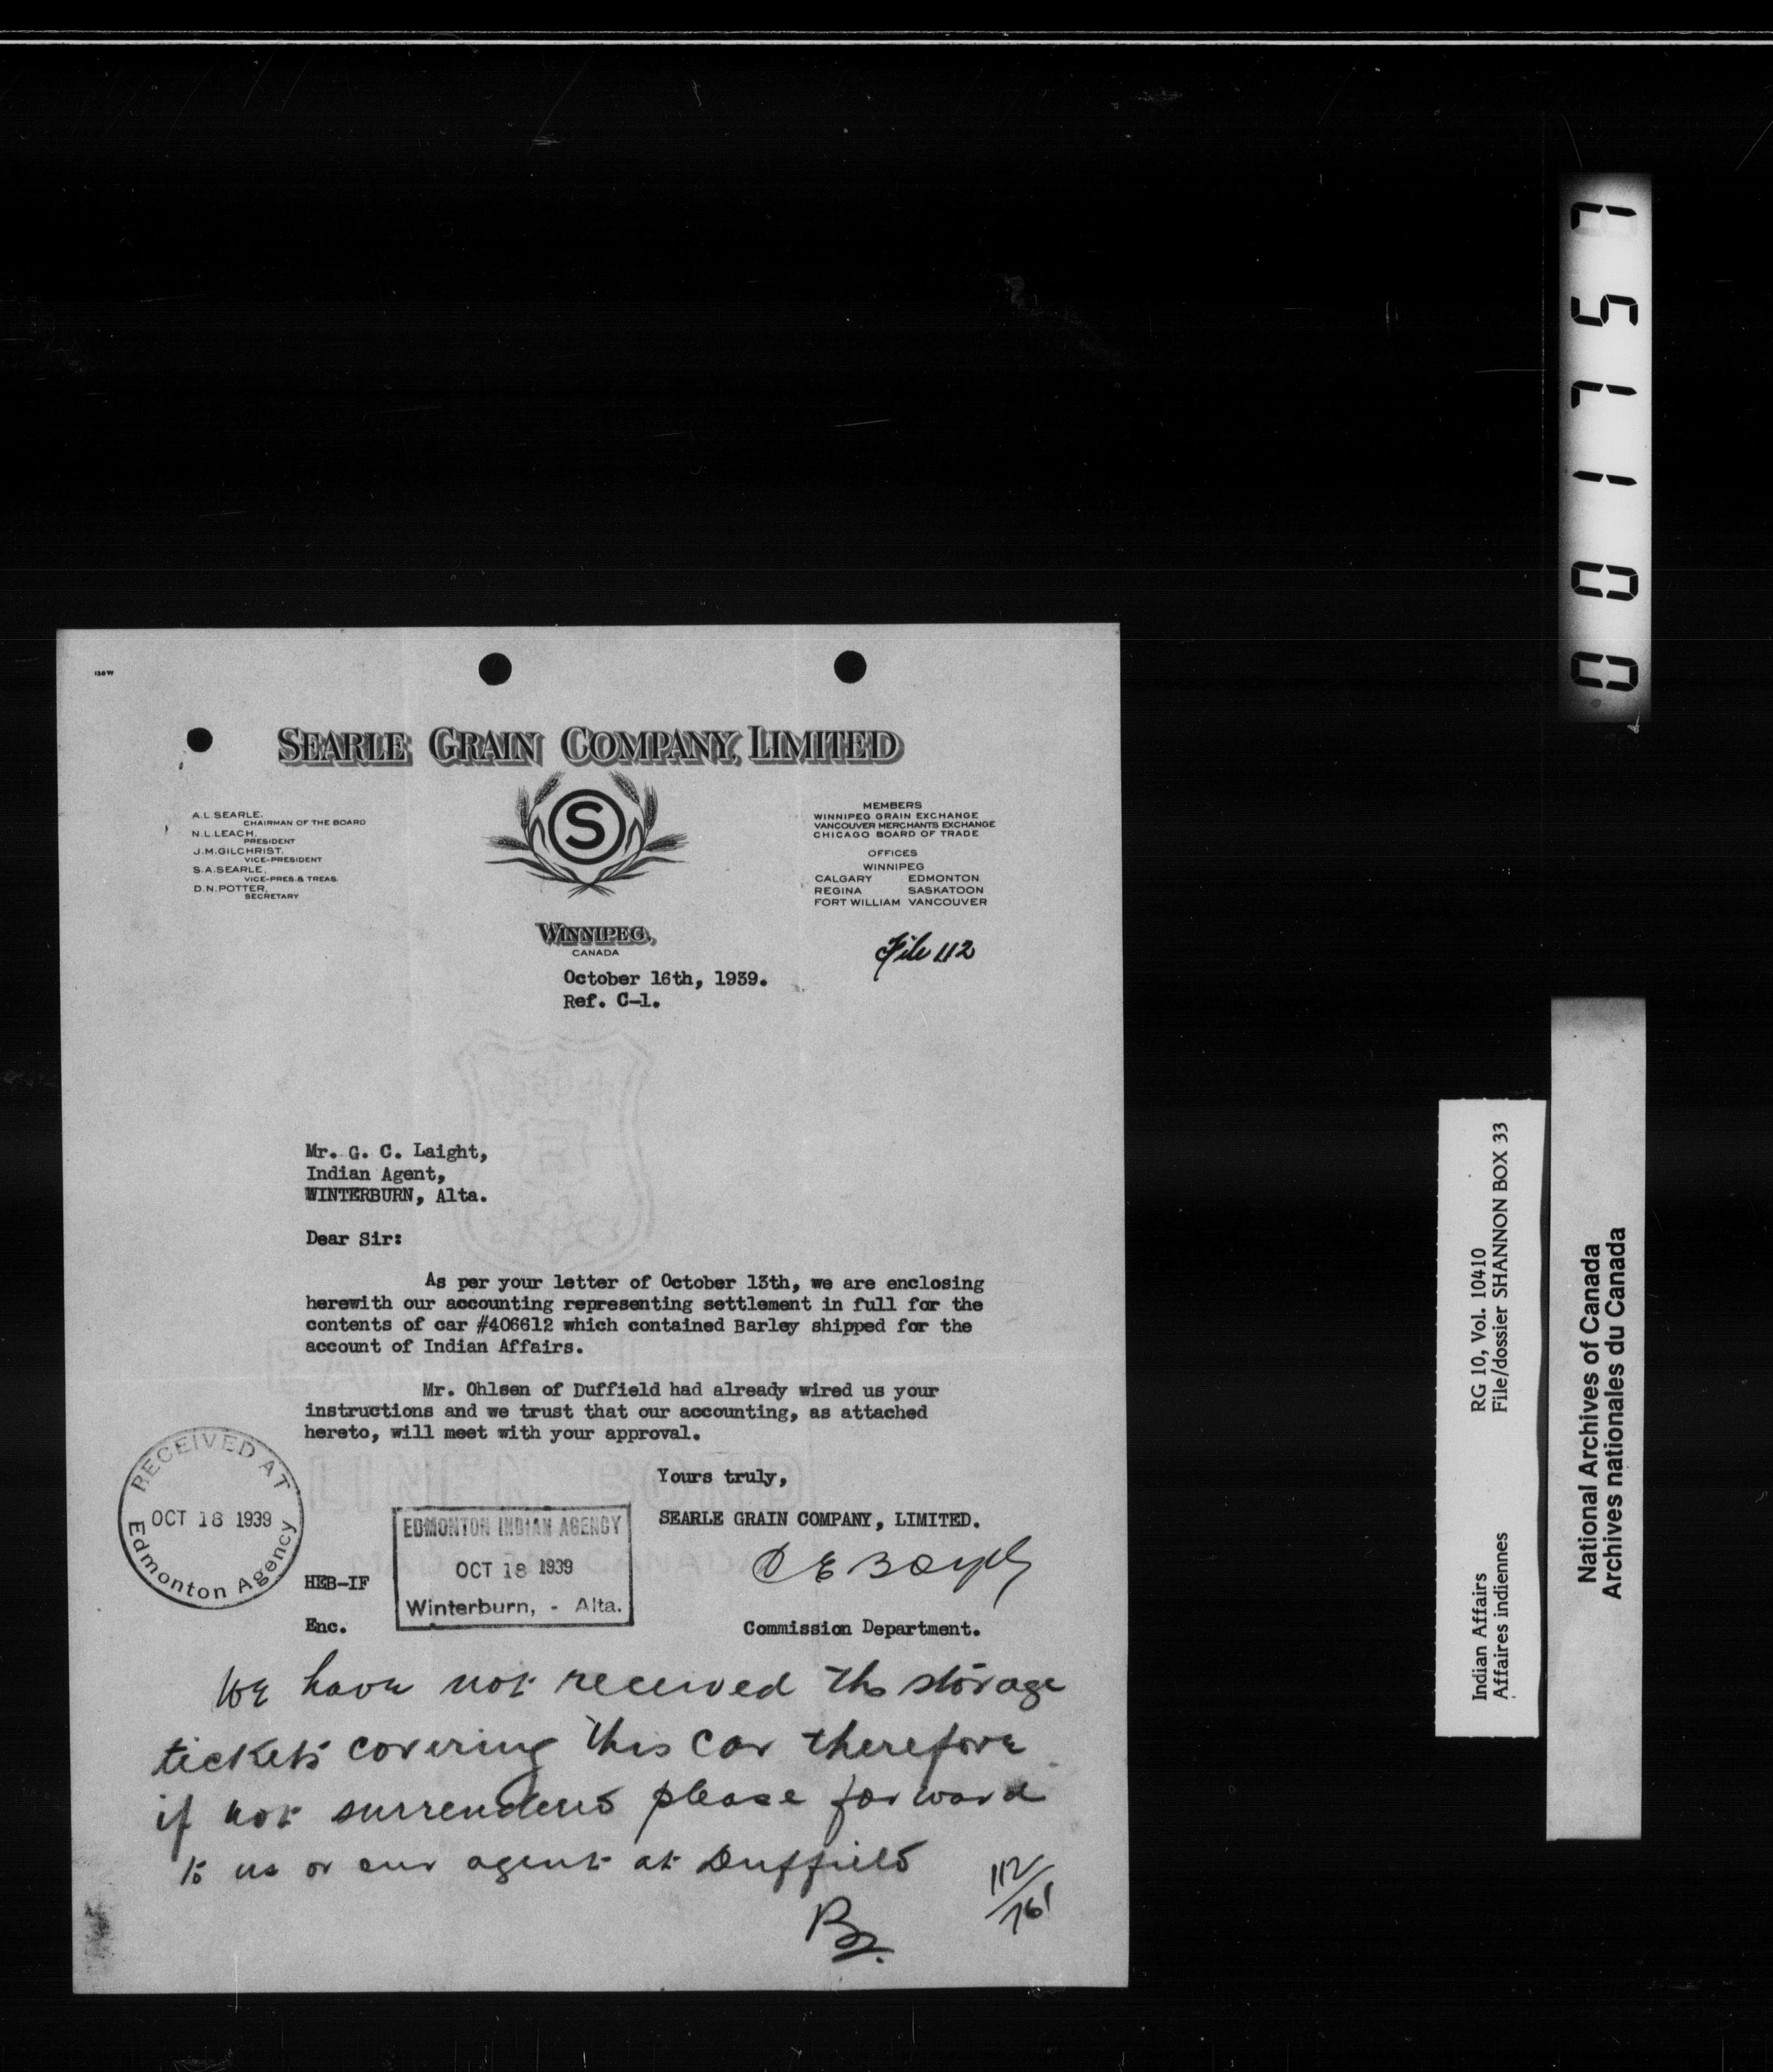 130W
SEARLE GRAIN COMPANY, LIMITED
A.L. SEARLE,
CHAIRMAN OF THE BOARD
N.L. LEACH,
PRESIDENT
J.M. GILCHRIST,
VICE-PRESIDENT
S.A. SEARLE,
VICE-PRES. & TREAS.
D.N. POTTER,
SECRETARY
S
MEMBERS
WINNIPEG GRAIN EXCHANGE
VANCOUVER MERCHANTS EXCHANGE
CHICAGO BOARD OF TRADE
OFFICES
WINNIPEG
CALGARY EDMONTON
REGINA SASKATOON
FORT WILLIAM VANCOUVER
WINNIPEG,
CANADA
File 112
October 16th, 1939.
Ref. C-1.
Mr. G. C. Laight,
Indian Agent,
WINTERBURN, Alta.
Dear Sir:
As per your letter of October 13th, we are enclosing
herewith our accounting representing settlement in full for the
contents of car #406612 which contained Barley shipped for the
account of Indian Affairs.
Mr. Ohlsen of Duffield had already wired us your
instructions and we trust that our accounting, as attached
hereto, will meet with your approval.
Yours truly,
SEARLE GRAIN COMPANY, LIMITED.
Commission Department.
RECEIVED AT
OCT 18 1939
Edmonton Agency
EDMONTON INDIAN AGENCY
OCT 18 1939
Winterburn, - Alta.
HEB-IF
Enc.
We have not received the storage
tickets covering this car therefore
if not surrendered please forward
to us or our agent at Duffield
112/161
001757
RG 10, Vol. 10410
File/dossier SHANNON BOX 33
Indian Affairs
Affaires indiennes
National Archives of Canada
Archives nationales du Canada